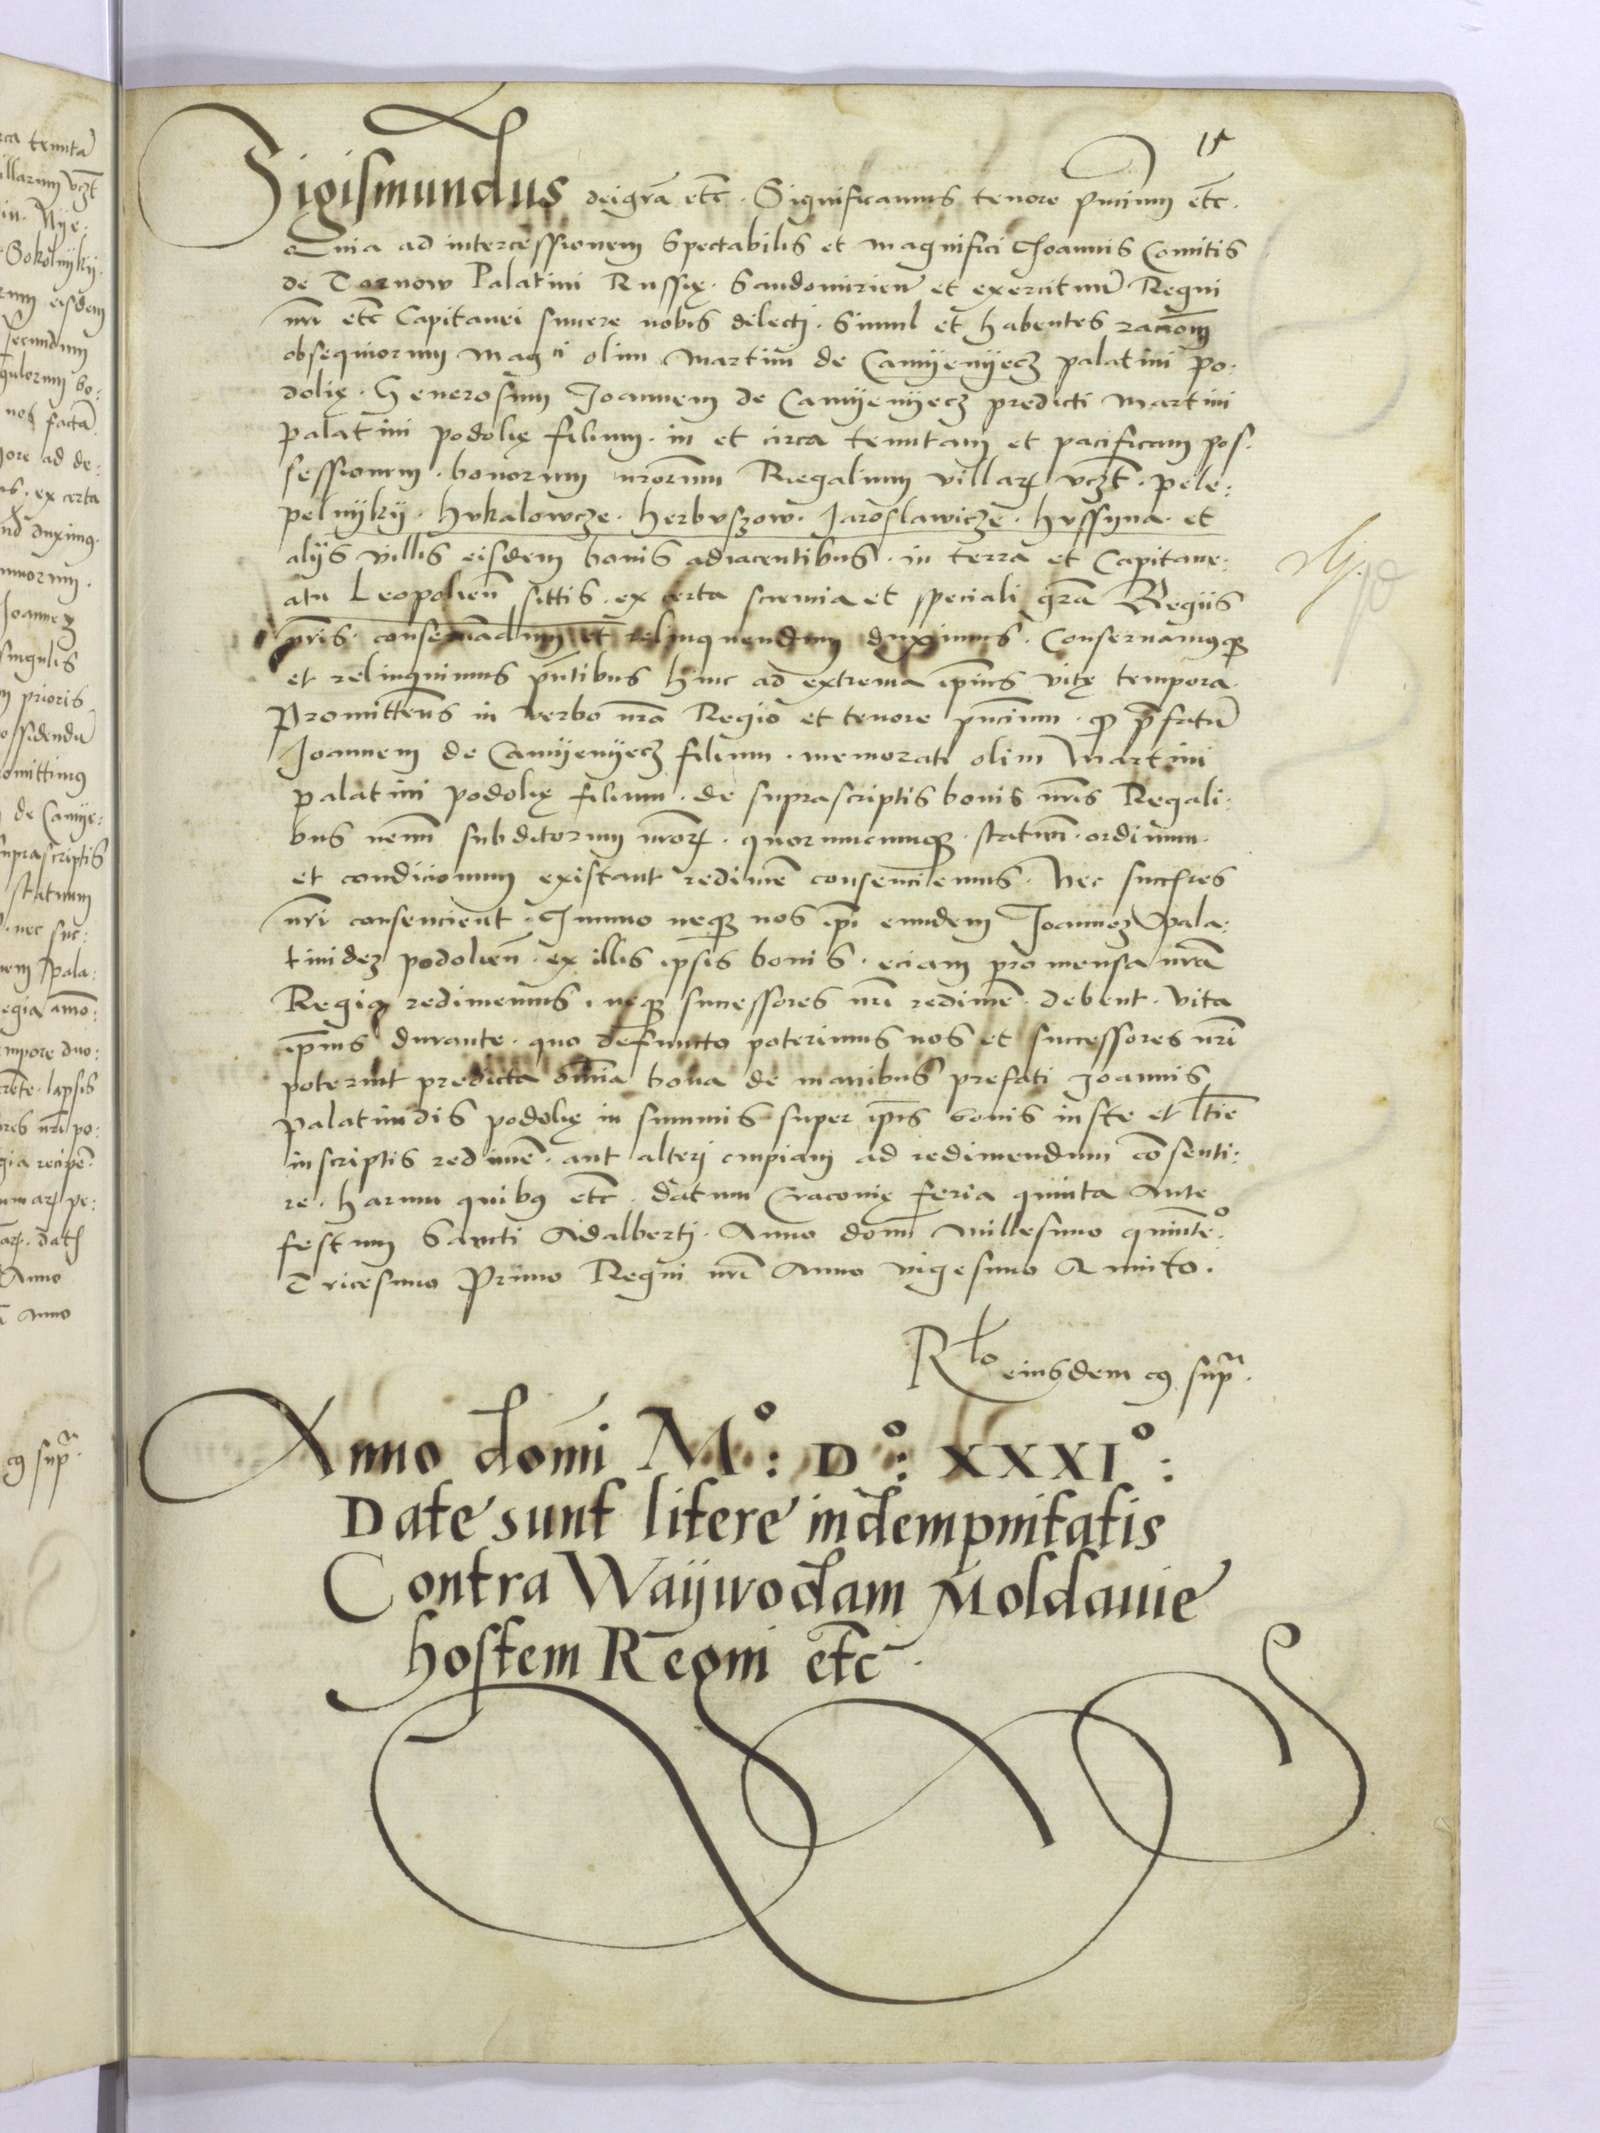 15
Sigismundus deigrā etc̄. Significamus tenore pn̄cium etc̄.
Quia ad intercessionem Spectabilis et magnifici Joannis Comitis
de Tarnow Palatini Russię. Sandomirien̄ et exercituū Regni
nr̄i etc̄ Capitanei sincere nobis delecti. Simul et habentes racionem
obsequiorum mag ci olim Martini de Camyenyecz palatini po:
dolię. Generosum Joannem de Camyenyecz predicti Martini
palatini podolię filium. in et circa tenutam et pacificam pos:
sessionem. bonorum nrorum Regalium villarꝝ vczt̄. pele:
pelnyky. hukalowcze. herbuszow. Jaroslawicze. hussyna. et
alijs villis eisdem bonis adiacentibus. in terra et Capitane:
atu Leopolien̄ sittis. ex certa sciencia et speciali gr̄a Regijs
nr̄is. conseruādum et relinquendum duximus. Conseruamusqꝫ
et relinquimus pn̄tibus hinc ad extrema ip̄ius vitę tempora.
Promittens in verbo nr̄o Regio et tenore pn̄cium. ꝙ p̄fatū
Joannem de Camyenyecz filium. memorati olim Martini
palatini podolię filium. de suprascriptis bonis nr̄is Regali:
bus nemī subditorum nr̄orꝝ. quorumcumqꝫ. statuū. ordinum.
et condicionum existant redimē consenciemus. Nec succ̄res
nr̄i consencient. Immo neqꝫ nos ip̄i eundem Joannez Pala:
tinidez podolien̄. ex illis ipsis bonis. eciam pro mensa nr̄a
Regia redimemus. neqꝫ successores nr̄i redimē. debent. vita
ip̄ius durante. quo defuncto poterimus nos et successores nr̄i
poterint predicta om̄ia bona de manibus prefati Joannis
Palatinidis podolię in summis super ip̄is bonis iuste et lt̄ie
inscriptis redimē. aut alteri cupiam ad redimendum cōsenti:
re. harum quibꝰ etc̄. datum Cracovię feria quinta Ante
festum Sancti Adalberti. Anno domī millesimo quingte.o
Tricesimo Primo Regni nr̄i Anno vigesimo Quinto.
Rlo eiusdem cꝰ supr̄.
Anno domī Mo: Do: XXXIo:
Date sunt litere indempnitatis
Contra Waywodam Moldauie
hostem Regni etc̄.